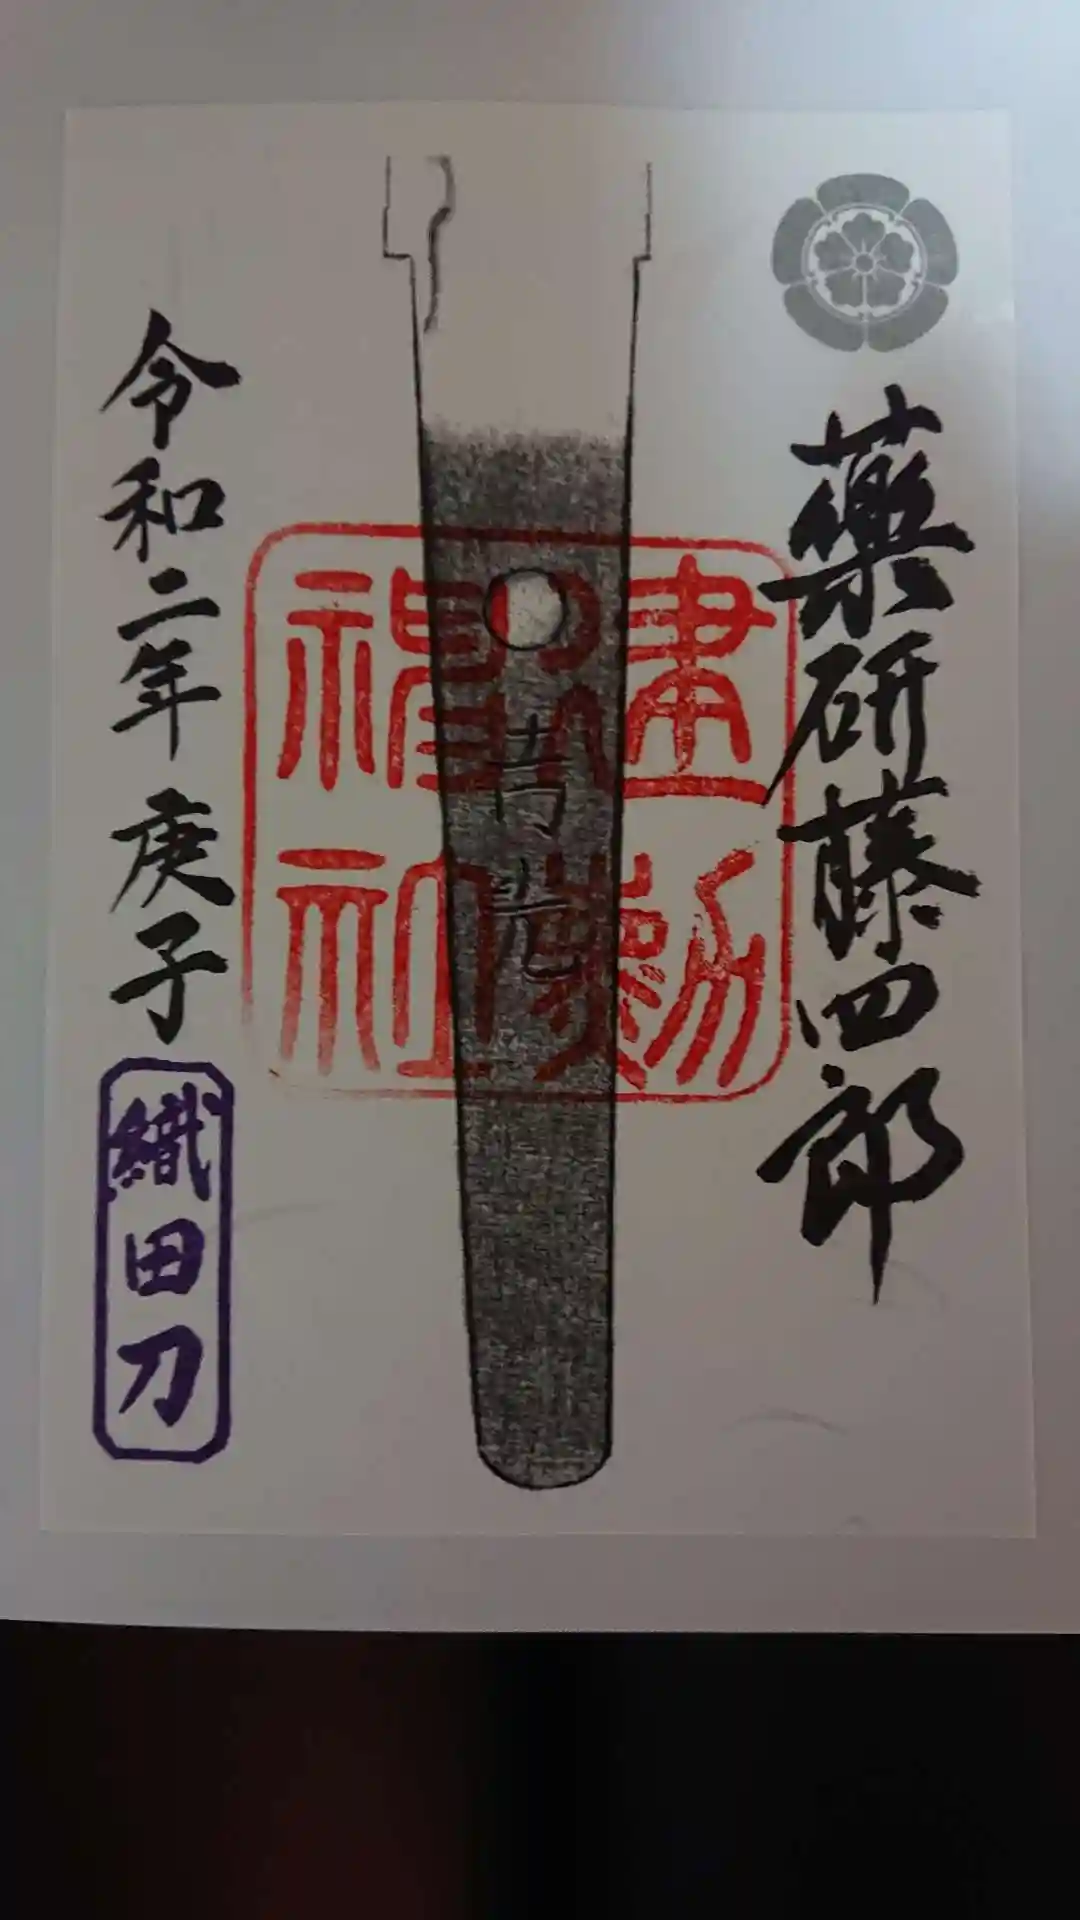 藥研藤四郎
吉光
建勲
神社
令和二年 庚子
織田刀